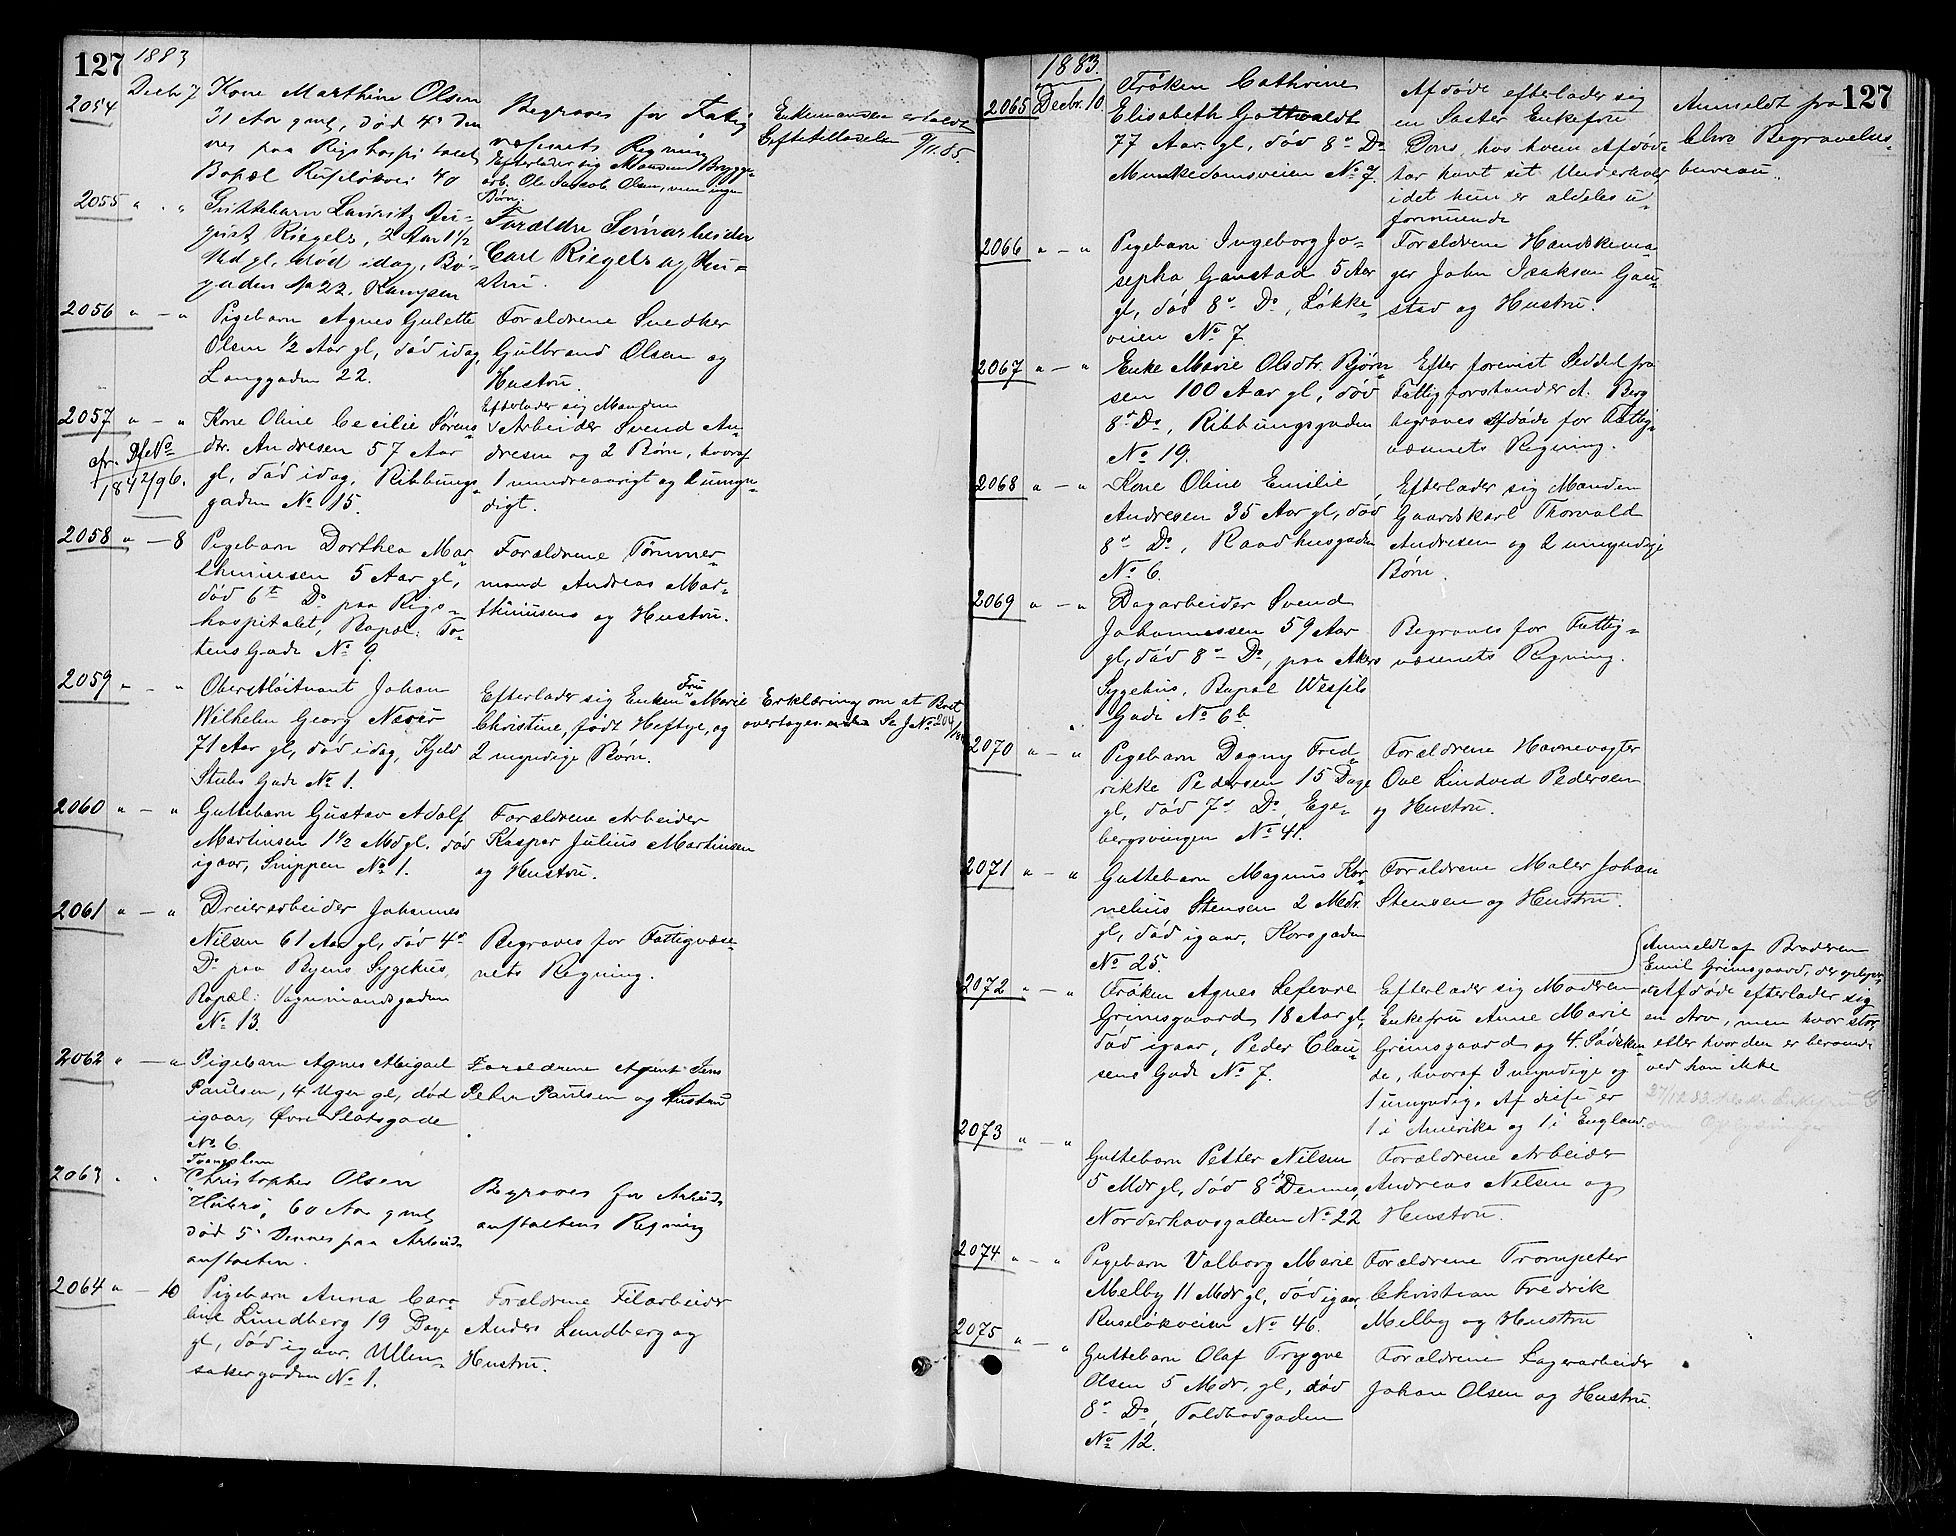 127
1883
2054
Decbr 7
Kone Marthine Olsen
31 Aar gml, død 4de den
nes paa Rigshospitalet
Bopæl Ruseløkvei 40
Begraves for Fattig
væsenets Regning
Efterlader sig Manden Brygge-
arb. Ole Jacob Olsen, men ingen
Børn.
Enkemanden erholdt
Gifte Attesten 9/11.85.
2055 " . "
Guttebarn Lauritz Au-
gust Riegels, 2 Aar 1 1/2
Md gl, død idag, Bø-
gaden No 22. Kampen
Forældre Sømarbeider
Carl Riegels og Hu-
stru.
2056 " — "
Pigebarn Agnes Gulette
Olsen 1/2 Aar gl, død idag
Langgaden 22.
Forældrene Snedker
Gulbrand Olsen og
Hustru.
2057 " — "
cfr. Df No
1842/96.
Kone Oline Cecilie Sørens
dtr. Andresen 57 Aar
gl, død idag, Ribbungs-
gaden No 15.
Efterlader sig Manden
Arbeider Svend An-
dresen og 2 Børn, hvoraf
1 mindreaarigt og 1 umyn-
digt.
2058 " — 8
Pigebarn Dorthea Mar-
thiniusen 5 Aar gl,
død 6te Ds paa Rigs-
hospitalet, Bopæl: To-
tens Gade No 9.
Forældrene Tømmer-
mand Andreas Mar-
thiniusens og Hustru.
2059 " — "
Oberstløitnant Johan
Wilhelm Georg Næser
71 Aar gl, død idag, Kjeld
Stubs Gade No 1.
Efterlader sig Enken Fru Marie
Christine, født Heftye, og
2 myndige Børn.
Erklæring om at Boet
overtages Se J No 204/84
2060 " — "
Guttebarn Gustav Adolf
Martinsen 1 1/2 Md gl. død
igaar, Snippen No 1.
Forældrene Arbeider
Kasper Julius Martinsen
og Hustru.
2061 " — "
Dreierarbeider Johannes
Nilsen 61 Aar gl, død 4de
Ds paa Byens Sygehus,
Bopæl: Vognmandsgaden
No 13.
Begraves for Fattigvæse-
nets Regning.
2062 " — "
Pigebarn Agnes Abigael
Paulsen, 4 Uger gl, død
igaar, Øvre Slotsgade
No 6.
Forældrene Agent Jens
Peter Paulsen og Hustru
2063 " . "
Tvangslem
Christopher Olsen
Holerø, 60 Aar gml,
død 5' Dennes paa Arbeids
anstalten.
Begraves for Arbeids
anstaltens Regning
2064 " — 10
Pigebarn Anna Caro-
line Lundberg 19 Dage
gl, død igaar. Ullen-
sakergaden No 1.
Forældrene Filarbeider
Anders Lundberg og
Hustru.
127
1883.
2065 Decbr. 10
Frøken Cathrine
Elisabeth Gottwaldt
77 Aar gl, død 8de Ds
Munkedamsveien No 7.
Afdøde efterlader sig
en Søster Enkefru
Dons hos hvem Afdøde
har havt sit Underhold
idet hun er aldeles u-
formuende
Anmeldt fra
Chra Begravelses-
bureau.
2066 " — "
Pigebarn Ingeborg Jo-
sepha Gaustad 5 Aar
gl, død 8de Ds, Løkke-
veien No 7.
Forældrene Handskema-
ger John Isaksen Gau-
stad og Hustru.
2067 " — "
Enke Marie Olsdtr. Bjørn-
sen 100 Aar gl, død
8de Ds, Ribbungsgaden
No 19.
Efter forevist Seddel fra
Fattigforstander A. Berg
begraves Afdøde for Fattig-
væsenets Regning.
2068 " — "
Kone Oline Emilie
Andresen 35 Aar gl, død
8de Ds, Raadhusgaden
No 6.
Efterlader sig Manden
Gaardskarl Thorvald
Andresen og 2 umyndige
Børn.
2069 " — "
Dagarbeider Svend
Johannessen 59 Aar
gl, død 8de Ds, paa Akers
Sygehus, Bopæl Wesfels
Gade No 6b
Begraves for Fattig-
væsenets Regning.
2070 " — "
Pigebarn Dagny Fred-
rikke Pedersen 15 Dage
gl, død 7de Ds, Ege-
bergsvingen No 41.
Forældrene Havnevogter
Ove Lindved Pedersen
og Hustru.
2071 " — "
Guttebarn Magnus Kor-
nelius Stensen 2 Mdr.
gl, død igaar, Korsgaden
No 25.
Forældrene Maler Johan
Stensen og Hustru.
2072 " — "
Frøken Agnes Lefevre
Grimsgaard 18 Aar gl,
død igaar, Peder Clau-
sens Gade No 7.
Efterlader sig Moderen
Enkefru Anne Marie
Grimsgaard og 4 Sødsken
de, hvoraf 3 myndige og
1 umyndig. Af disse er
1 i Amerika og 1 i England.
Anmeldt af Broderen
Emil Grimsgaard, der oplyser,
at Afdøde efterlader sig
en Arv, men hvor stor,
eller hvor den er beroende
ved han ikke
2073 " — "
Guttebarn Petter Nilsen
5 Mdr gl, død 8de Dennes,
Norderhovsgaden No 22
Forældrene Arbeider
Andreas Nilsen og
Hustru.
2074 " — "
Pigebarn Valborg Marie
Melby 11 Mdr gl, død igaar,
Ruseløkveien No 46.
Forældrene Trompeter
Christian Fredrik
Melby og Hustru
2075 " — "
Guttebarn Olaf Trygve
Olsen 5 Mdr. gl, død
8de Ds, Toldbodgaden
No 12.
Forældrene Lagerarbeider
Johan Olsen og Hustru.